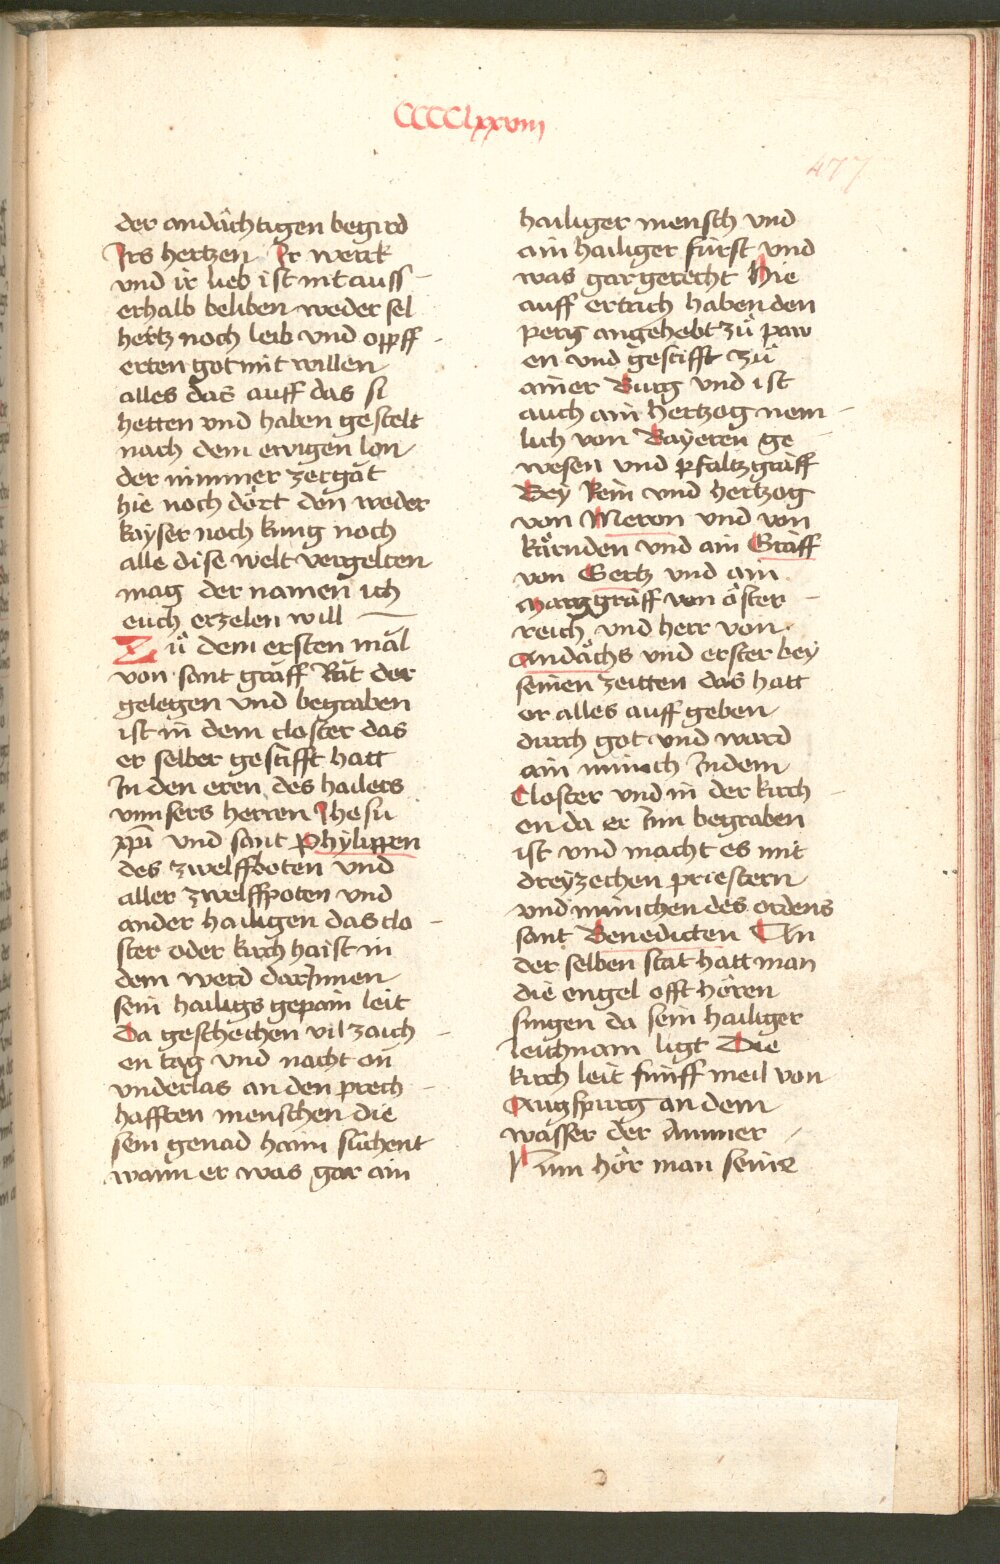 CCCClxxviij
477
der andächtigen begird
Irs hertzen Ir werck
vnd ir lieb ist nit auss
erhalb beliben weder sel
hertz noch leib vnd opff
erten got mit willen
alles das auff das si
hetten vnd haben gestelt
nach dem ewigen lon
der nimmer zergat
hie noch dört den weder
kayser noch kung noch
alle dise welt vergelten
mag der namen ich
euch erzelen will
Zů dem ersten mal
von sant graff Rät der
gelegen vnd begraben
ist in dem closter das
er selber gestifft hatt
In den eren des hailers
vnnsers herren Ihesu
xpi vnd sant Phylippen
des zwelffboten vnd
aller zwelffpoten vnd
ander hailigen das clo
ster oder kirch haist in
dem werd darInnen
sein hailigs gepain leit
Da geschechen vil zaich
en tag vnd nacht on
vnderlas an den prech
hafften menschen die
sein genad haim süchent
wann er was gar ain
hailiger mensch vnd
ain hailiger fürst vnd
was gar gerecht Hie
auff ertrich haben den
perg angehebt zů paw
en vnd gestifft zů
ainer Burg vnd ist
auch ain hertzog nem
lich von Bayeren ge
wesen vnd pfaltzgraff
Bey Rein vnd hertzog
von Meron vnd von
kärnden vnd ain Graff
von Gertz vnd ain
Marggraff von öster
reich vnd herr von
Andächs vnd erster bey
seinen zeitten das hatt
er alles auff geben
durch got vnd ward
ain münch Indem
Closter vnd in der kirch
en da er Inn begraben
ist vnd macht es mit
dreyzechen priestern
vnd münichen des ordens
sant Benedicten An
der selben stat hatt man
die engel offt hören
singen da sein hailiger
leichnam ligt Die
kirch leit fünff meil von
Augspurg an dem
wasser der Ammer
Nun hör man seine